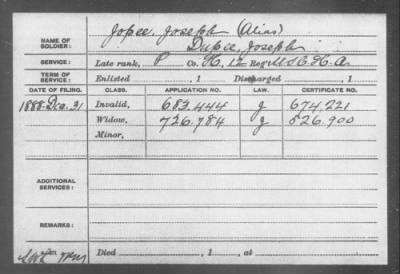 NAME OF SOLDIER: Jopee, Joseph (Alias)
Dupee, Joseph
SERVICE: Late rank, P Co. H, 12 Reg't U.S.C.H.A.
TERM OF SERVICE: Enlisted , 1 Discharged , 1
DATE OF FILING. CLASS. APPLICATION NO. LAW. CERTIFICATE NO.
1888 Dec. 31 Invalid, 683.444 J 674.221
Widow, 726.784 J 526.900
Minor,
ADDITIONAL SERVICES:
REMARKS:
Died , 1 , at